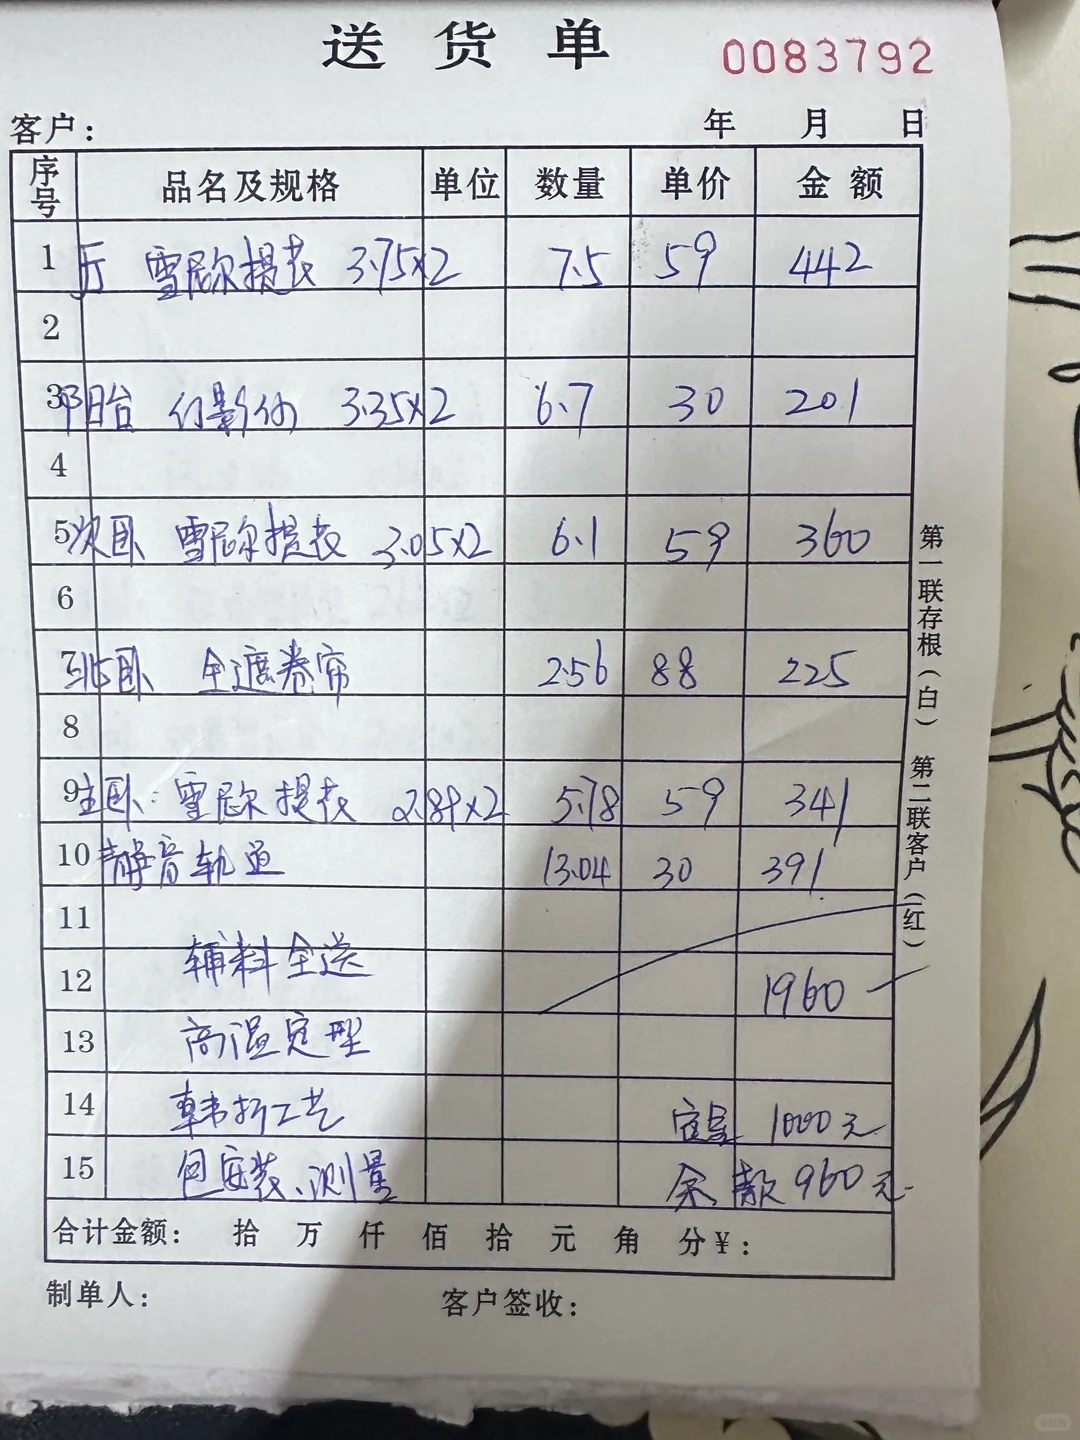 送货单 0083792
客户: 年 月 日
序号 品名及规格 单位 数量 单价 金额
1 厅 雪尼尔提花 3.75×2 7.5 59 442
2
3 阳台 幻影纱 3.35×2 6.7 30 201
4
5 次卧 雪尼尔提花 3.05×2 6.1 59 360
6
7 北卧 全遮卷帘 2.56 88 225
8
9 主卧: 雪尼尔提花 2.89×2 5.78 59 341
10 静音轨道 13.04 30 391
11
12 辅料全送 1960
13 高温定型
14 韩折工艺 定金 1000元
15 包安装、测量 余款960元
合计金额: 拾 万 仟 佰 拾 元 角 分¥:
制单人: 客户签收:
第一联存根(白) 第二联客户(红)
小红书